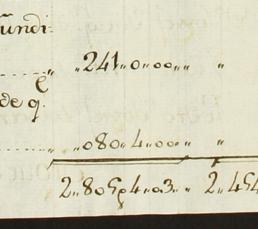 undi:
„ „241„0„00„„ „
de q.
„ „080„4„00„„ „
2„805„4„03„ 2„454